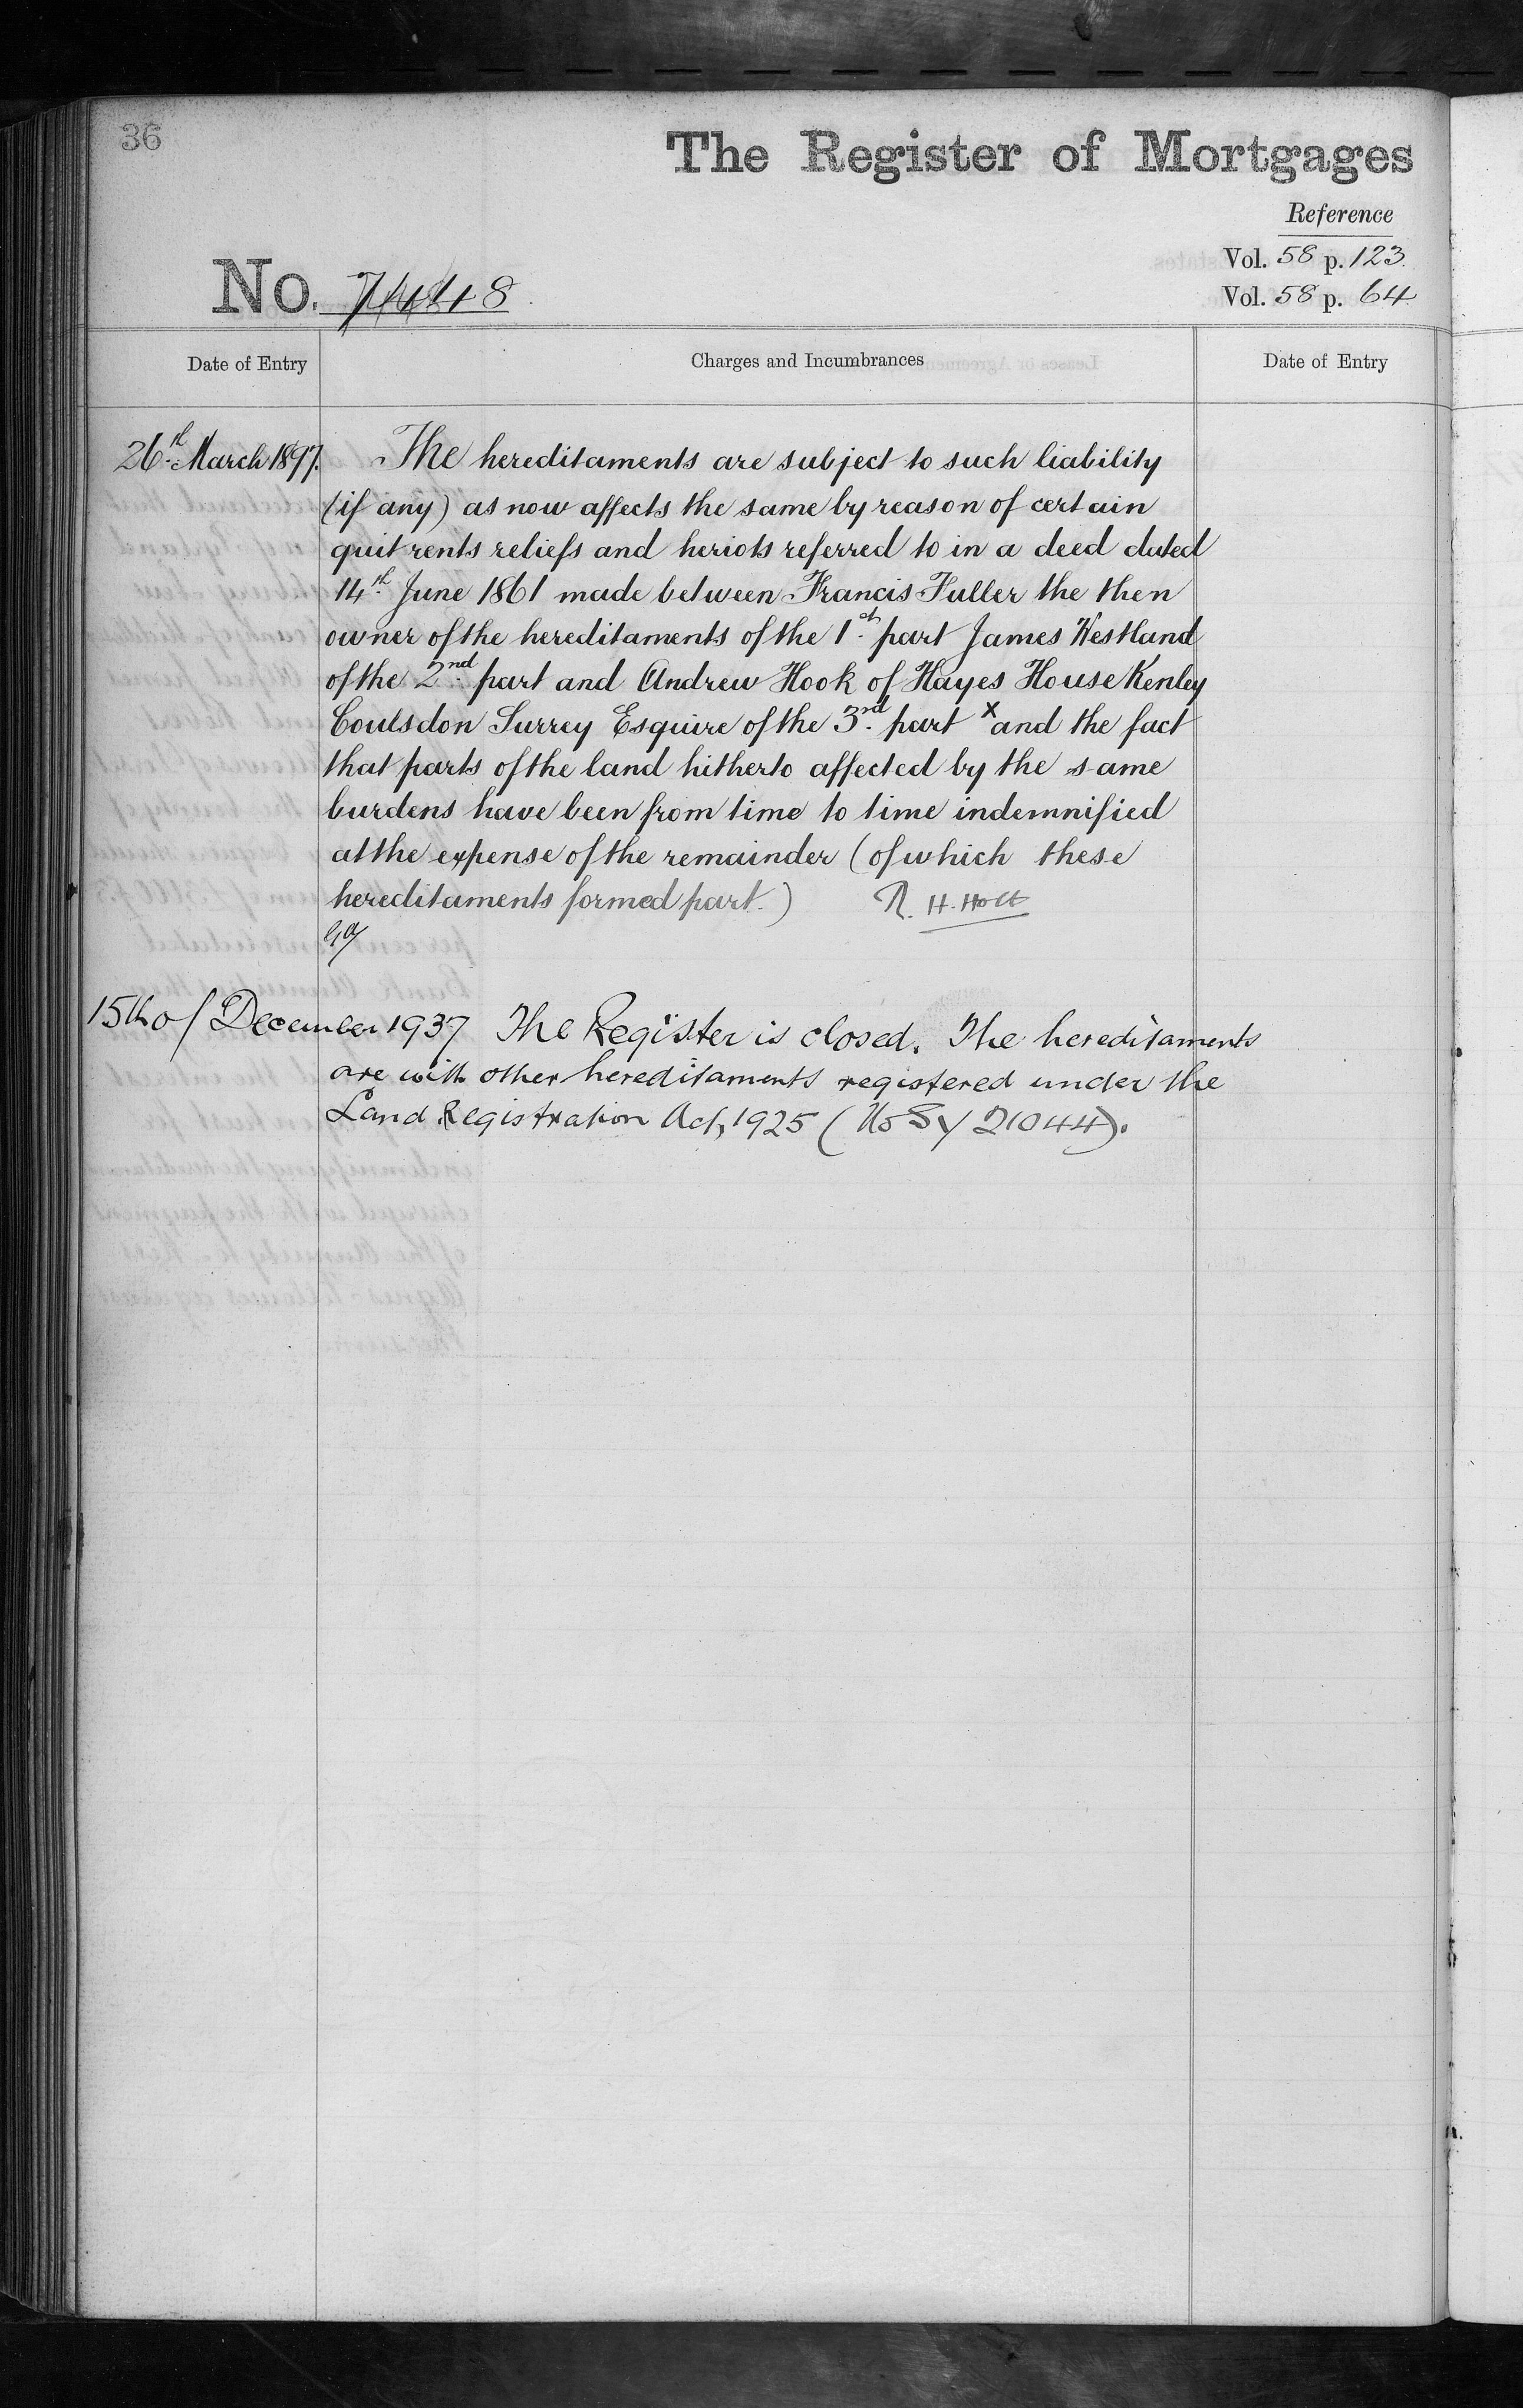 36
The Register of Mortgages
Reference
Vol. 58 p. 123
Vol. 58 p. 64
No.
Date of Entry
Charges and Incumbrances
Date of Entry
26th March 1897.
The hereditaments are subject to such liability
(if any) as now affects the same by reason of certain
quit rents reliefs and heriots referred to in a deed dated
14th June 1861 made between Francis Fuller the then
owner of the hereditaments of the 1st part James Westland
of the 2nd part and Andrew Hook of Hayes House Kenley
Coulsdon Surrey Esquire of the 3rd part x and the fact
that parts of the land hitherto affected by the same
burdens have been from time to time indemnified
at the expense of the remainder (of which these
hereditaments formed part.) R. H. Holt
15th of December 1937 The Register is closed. The hereditaments
are with other hereditaments registered under the
Land Registration Act, 1925 (No Sy 21044).